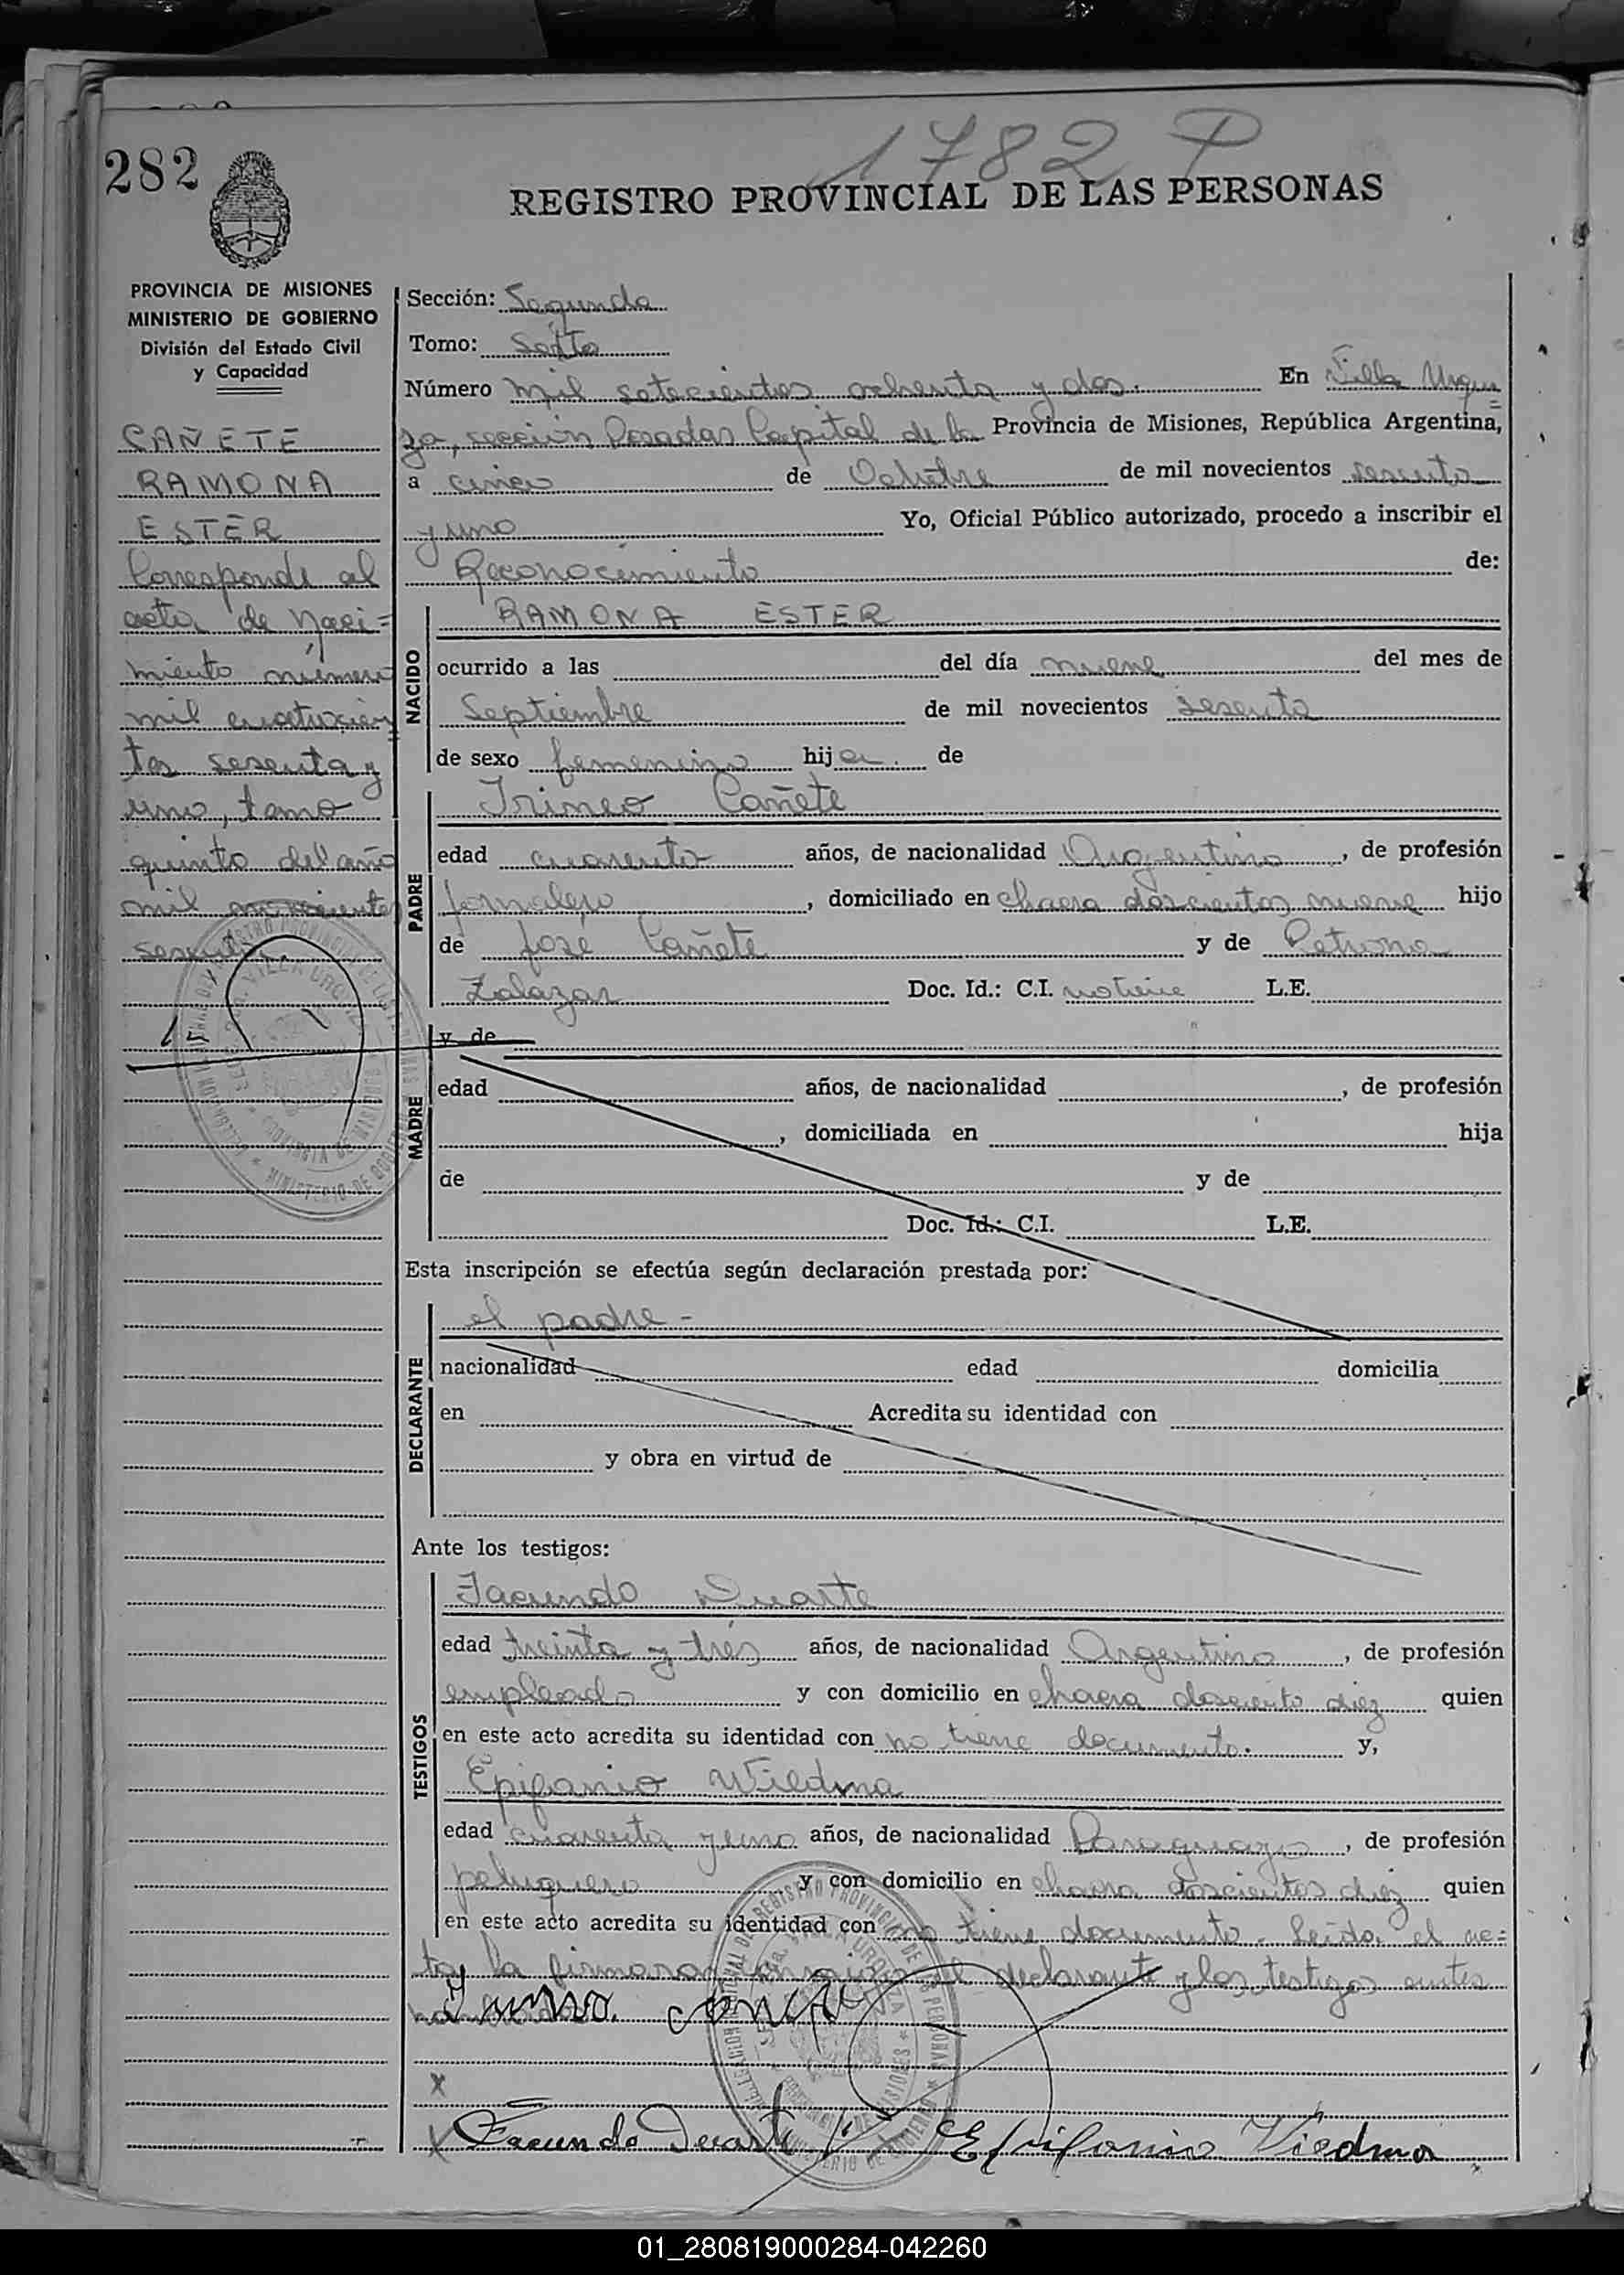 1782 P
282
REGISTRO PROVINCIAL DE LAS PERSONAS
PROVINCIA DE MISIONES
MINISTERIO DE GOBIERNO
División del Estado Civil
y Capacidad
CAÑETE
RAMONA
ESTER
Corresponde al
acta de Naci=
miento número
mil cuatrocien=
tos sesenta y
uno, tomo
quinto del año
mil novecientos
sesenta
Sección: Segunda
Tomo: Sexto
Número mil setecientos ochenta y dos. En Villa Urqui=
za, sección Posadas Capital de la Provincia de Misiones, República Argentina,
a cinco de Octubre de mil novecientos sesenta
y uno Yo, Oficial Público autorizado, procedo a inscribir el
Reconocimiento de:
NACIDO
RAMONA ESTER
ocurrido a las del día nueve del mes de
Septiembre de mil novecientos sesenta
de sexo femenino hija. de
PADRE
Irineo Cañete
edad cuarenta años, de nacionalidad Argentino, de profesión
jornalero, domiciliado en chacra doscientos nueve hijo
de José Cañete y de Petrona
Zalazar Doc. Id.: C.I. no tiene L.E.
MADRE
y de
edad años, de nacionalidad , de profesión
, domiciliada en hija
de y de
Doc. Id.: C.I. L.E.
Esta inscripción se efectúa según declaración prestada por:
DECLARANTE
el padre -
nacionalidad edad domicilia
en Acredita su identidad con
y obra en virtud de
Ante los testigos:
TESTIGOS
Facundo Duarte
edad treinta y tres años, de nacionalidad Argentino, de profesión
empleado y con domicilio en chacra doscientos diez quien
en este acto acredita su identidad con no tiene documento. y,
Epifanio Viedma
edad cuarenta y uno años, de nacionalidad Paraguayo, de profesión
peluquero y con domicilio en chacra doscientos diez quien
en este acto acredita su identidad con no tiene documento. Leída el ac=
ta, la firmaron conmigo el declarante y los testigos antes
x
x Facundo Duarte Epifanio Viedma
01_280819000284-042260